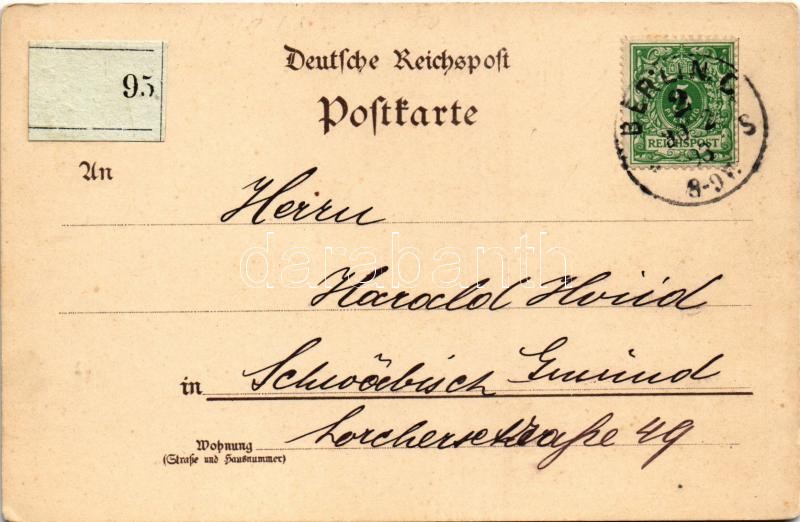 95.
Deutsche Reichspost
Postkarte
BERLIN. C.
5
REICHSPOST
S
8-9V.
An
Herrn
Harald Hviid
darabanth
in Schwäbisch Gmünd
Lorcherstraße 49
Wohnung
(Straße und Hausnummer)